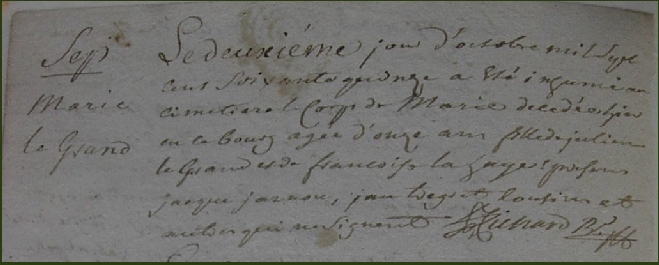 Sep
Marie
le Grand
Le deuxiéme jour d'octobre mil Sept
cent Soixante quinze a été inhumé au
cimetiere le Corps de Marie decedée hier
en ce bourg agée d'onze ans fille de julien
le Grand et de francoise la haye presens
jacque jarnou, jan cousins et
autres qui ne Signent Richard